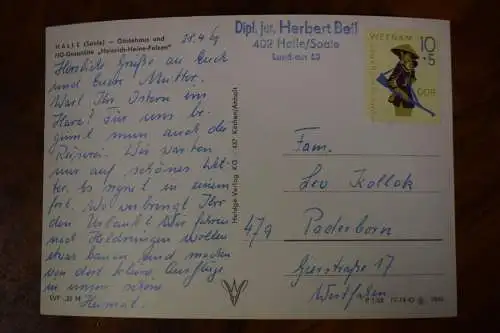 HALLE (Saale) — Gästehaus und
HO-Gaststätte „Heinrich-Heine-Felsen"
28.4.69
Herzliche Grüße an Euch
und Eurer Mutter.
Wart Ihr Ostern im
Harz? Für uns be-
ginnt nun auch die
Reiserei. Wir warten
nur auf schönes Wet-
ter. Es regnet in einem
fort. Wo verbringt Ihr
den Urlaub? Wir fahren
nach Heldrungen wollen
etwas bauen und machen
von dort schöne Ausflüge
in unsere schöne
Heimat.
VVF
Heldge-Verlag KG 437 Köthen/Anhalt
Dipl. jur. Herbert Beil
402 Halle/Saale
WEETNAM
10
+5
DDR
Fam.
Leo Kollok
479 Paderborn
Giersstraße 17
Westfalen